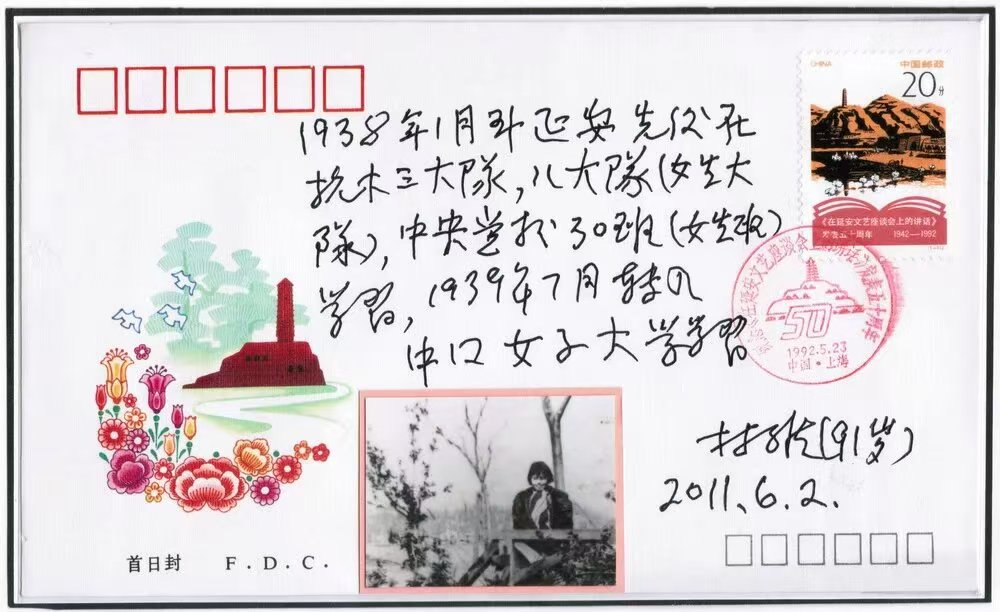 CHINA 中国邮政
20分
《在延安文艺座谈会上的讲话》
发表五十周年 1942—1992
1938年1月到延安先后在
抗大三大隊,八大隊(女生大
隊),中央党校30班(女生班)
学習,1939年7月转入
中国女子大学学習
50
1992.5.23
中国·上海
(91岁)
2011.6.2.
首日封 F.D.C.